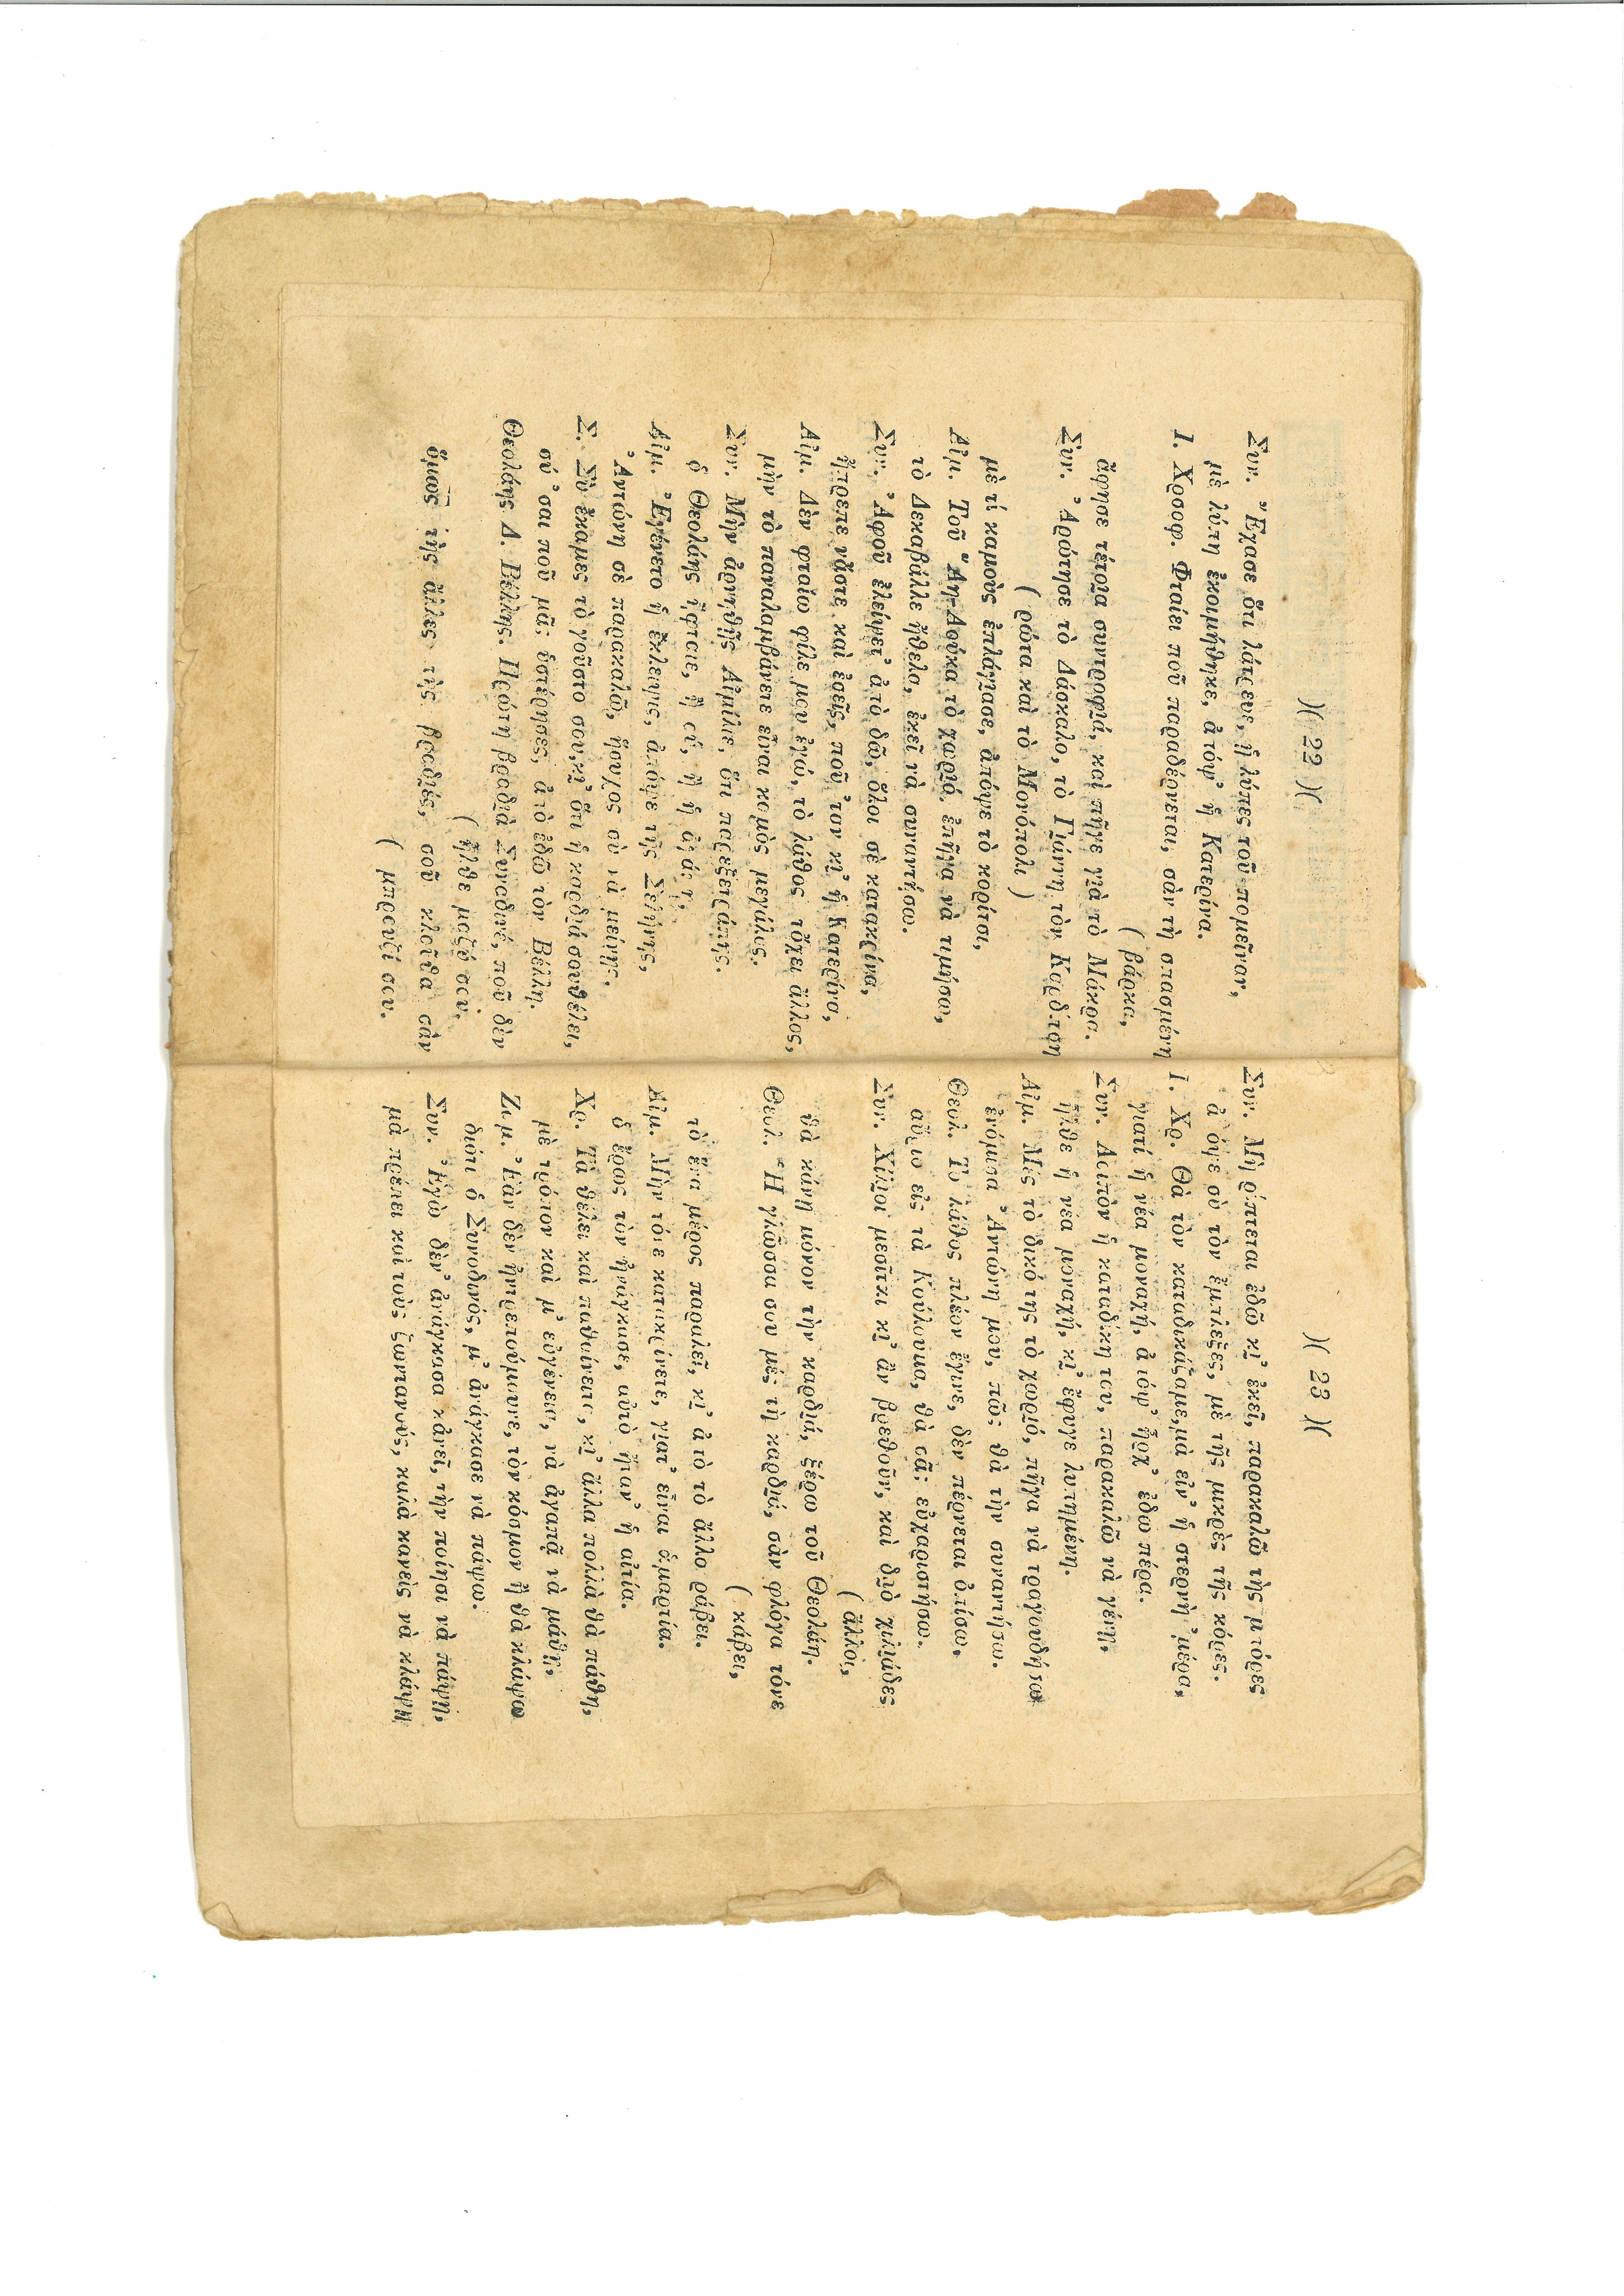 )( 22 )(
Συν. Ἔχασε ὅτι λάτρευε, ἡ λύπες τοῦ πομεῖναν,
μὲ λύπη ἐκοιμήθηκε, ἀπόψ' ἡ Κατερίνα.
Ι. Χρσοφ. Φταίει ποῦ παραδέρνεται, σὰν τὴ σπασμένη
( βάρκα,
ἄφησε τέτοια συντροφιά, καὶ πῆγε γιὰ τὸ Μάκρα.
Συν. Ἀρώτησε τὸ Δάσκαλο, τὸ Γιάννη τὸν Καρδάση
( ρώτα καὶ τὸ Μονόπολι )
μὲ τί καμοὺς ἐπλάγιασε, ἀπόψε τὸ κορίτσι,
Αἰμ. Τοῦ Ἄη-Λούκα τὸ χωριό, ἐπῆγα νὰ τιμήσω,
τὸ Δεκαβάλλε ἤθελα, ἐκεῖ νὰ συναντήσω.
Συν. Ἀφοῦ ἐλείψετ' ἀπὸ δῶ, ὅλοι σὲ κατακρίνα,
ἔπρεπε νἆστε καὶ ἐσεῖς, ποῦ 'τον κι' ἡ Κατερίνα,
Αἰμ. Δὲν φταίω φίλε μου ἐγώ, τὸ λάθος τὄχει ἄλλος,
μὴν τὸ παναλαμβάνετε εἶναι καμὸς μεγάλος.
Συν. Μὴν ἀρνηθῇς Αἰμίλιε, ὅτι παρεξετράπης.
ὁ Θεολάης ἔφταιε, ἢ σύ, ἢ ἡ ἀγάπη,
Αἰμ. Ἐγένετο ἡ ἔκλειψις, ἀπόψε τῆς Σελήνης,
Ἀντώνη σὲ παρακαλῶ, ἥσυχος σὺ νὰ μείνῃς.
Σ. Σὺ ἔκαμες τὸ γοῦστο σου, κι' ὅτι ἡ καρδιά σου θέλει,
σύ 'σαι ποῦ μᾶς ὑστέρησες, ἀπὸ ἐδῶ τὸν Βέλλη.
Θεολάης Δ. Βέλλης. Πρώτη βραδιὰ Συνοδινέ, ποῦ δὲν
( ἦλθε μαζύ σου,
ὅμως τὴς ἄλλες τὴς βραδιές, σοῦ κλοῦθα σὰν
( μπρουζί σου.
)( 23 )(
Συν. Μὴ ρίπτεται ἐδῶ κι' ἐκεῖ, παρακαλῶ τὴς μπόρες
ἀπόψε σὺ τὸν ἔμπλεξες, μὲ τῆς μικρὲς τῆς κόρες.
Ι. Χρ. Θὰ τὸν καταδικάζαμε, μὰ εἶν' ἡ στερνὴ 'μέρα,
γιατί ἡ νέα μοναχή, ἀπόψ' ἦρχ' ἐδω πέρα.
Συν. Λοιπὸν ἡ καταδίκη του, παρακαλῶ νὰ γένῃ,
ἦλθε ἡ νέα μοναχή, κι' ἔφυγε λυπημένη.
Αἰμ. Μὲς τὸ δικό της τὸ χωριό, πῆγα νὰ τραγουδήσω
ἐνόμισα Ἀντώνη μου, πῶς θὰ τὴν συναντήσω.
Θεολ. Τὸ λάθος πλέον ἔγινε, δὲν πέρνεται ὀπίσω,
αὔριο εἰς τὰ Κούλουμα, θὰ σᾶς εὐχαριστήσω.
Συν. Χίλιοι μεσῖται κι' ἂν βρεθοῦν, καὶ δυὸ χιλιάδες
( ἄλλοι,
θὰ κάνῃ μόνον τὴν καρδιά, ξέρω τοῦ Θεολάη.
Θεολ. Ἡ γλῶσσα σου μὲς τὴ καρδιά, σὰν φλόγα τόνε
( κάβει,
τὸ ἕνα μέρος παραλεῖ, κι' ἀπὸ τὸ ἄλλο ράβει.
Αἰμ. Μὴν τόνε κατακρίνετε, γιατ' εἶναι ἁμαρτία.
ὁ ἔρως τὸν ἠνάγκασε, αὐτὸ ἦταν ἡ αἰτία.
Χρ. Τὰ θέλει καὶ παθαίνει τς, κι' ἄλλα πολλὰ θὰ πάθῃ,
μὲ τρόπον καὶ μ' εὐγένεια, νὰ ἀγαπᾷ νὰ μάθῃ,
Ζεμ. Ἐὰν δὲν ἠντρεπούμουνε, τὸν κόσμον ἢ θὰ κλάψω
διότι ὁ Συνοδινός, μ' ἀνάγκασε νὰ πάψω.
Συν. Ἐγὼ δὲν ἀνάγκασα κἀνεῖ, τὴν ποίησι νὰ πάψῃ,
μὰ πρέπει καὶ τοὺς ζωντανούς, καλὰ κανεὶς νὰ κλάψῃ